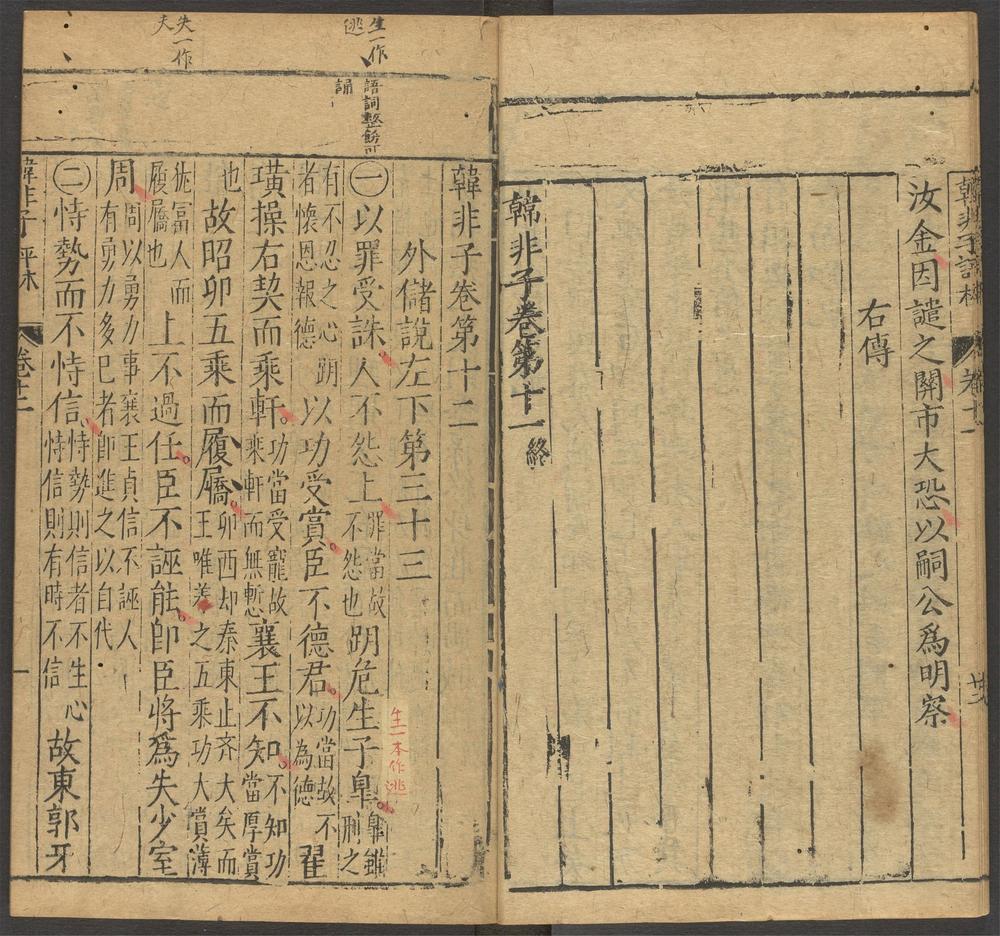 韓非子評林
卷十一
汝金因譴之關市大恐以嗣公爲明察
右傳
韓非子卷第十一終
生一作逃
失一作夫
語詞整飭可誦
韓非子卷第十二
外儲說左下第三十三
㊀以罪受誅人不怨上罪當故不怨也跀危生子臯臯雖刑之
有不忍之心跀者懷恩報德以功受賞臣不德君功當故不以為德翟
璜操右契而乘軒功當受寵故乘軒而無慙襄王不知不知功當厚賞
也故昭卯五乘而履屩卯西却秦東止齊大矣而王唯養之五乘功大賞薄
猶富人而履屩也上不過任臣不誣能卽臣將爲失少室
周周以勇力事襄王貞信不誣人有勇力多巳者卽進之以自代
㊁恃勢而不恃信恃勢則信者不生心恃信則有時不信故東郭牙
生一本作逃
韓非子評林
卷十二
一